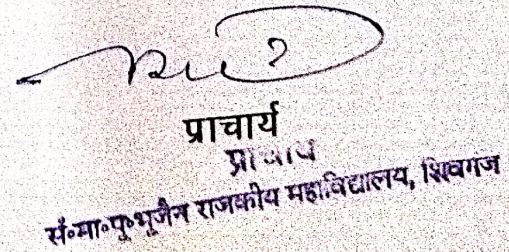 प्राचार्य
प्राचार्य
सं॰मा॰पु॰भूजैन राजकीय महाविद्यालय, शिवगंज